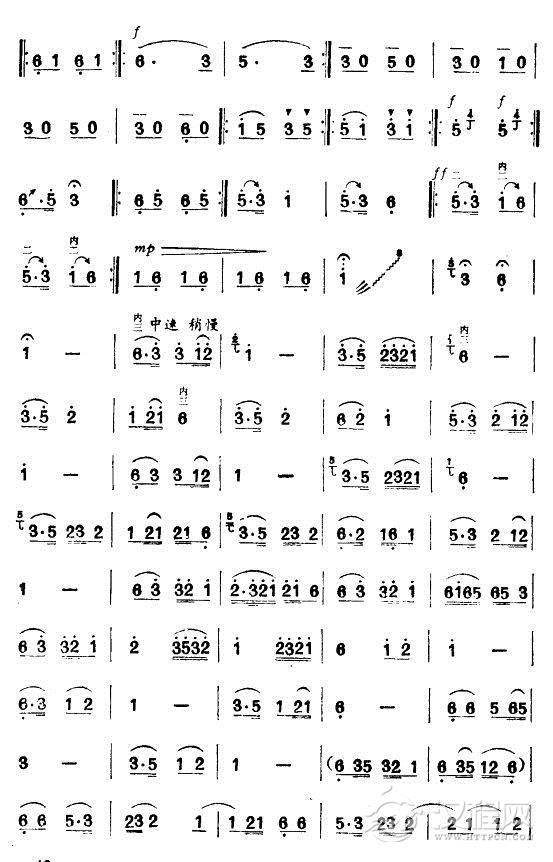 f
6 1 6 1 6· 3 5· 3 3 0 5 0 3 0 1 0
f f
3 0 5 0 3 0 6 0 1 5 3 5 5 1 3 1 5 5
ff 二 内二
6·5 3 6 5 6 5 5·3 1 5·3 6 5·3 1 6
二 内二 mp
5·3 1 6 1 6 1 6 1 6 1 6 1 3 6
内三 中速 稍慢 内三
1 — 6·3 3 12 1 — 3·5 2321 6 —
内三
3·5 2 1 21 6 3·5 2 6 2 1 5·3 2 12
1 — 6 3 3 12 1 — 3·5 2321 6 —
3·5 23 2 1 21 21 6 3·5 23 2 6·2 16 1 5·3 2 12
1 — 6 3 32 1 2·321 21 6 6 3 32 1 6165 65 3
6 3 32 1 2 3532 1 2321 6 1 2 1 —
6·3 1 2 1 — 3·5 1 21 6 — 6 6 5 65
3 — 3·5 1 2 1 — (6 35 32 1 6 35 12 6)
6 6 5·3 23 2 1 1 21 6 6 5·3 23 2 2 1 1 2